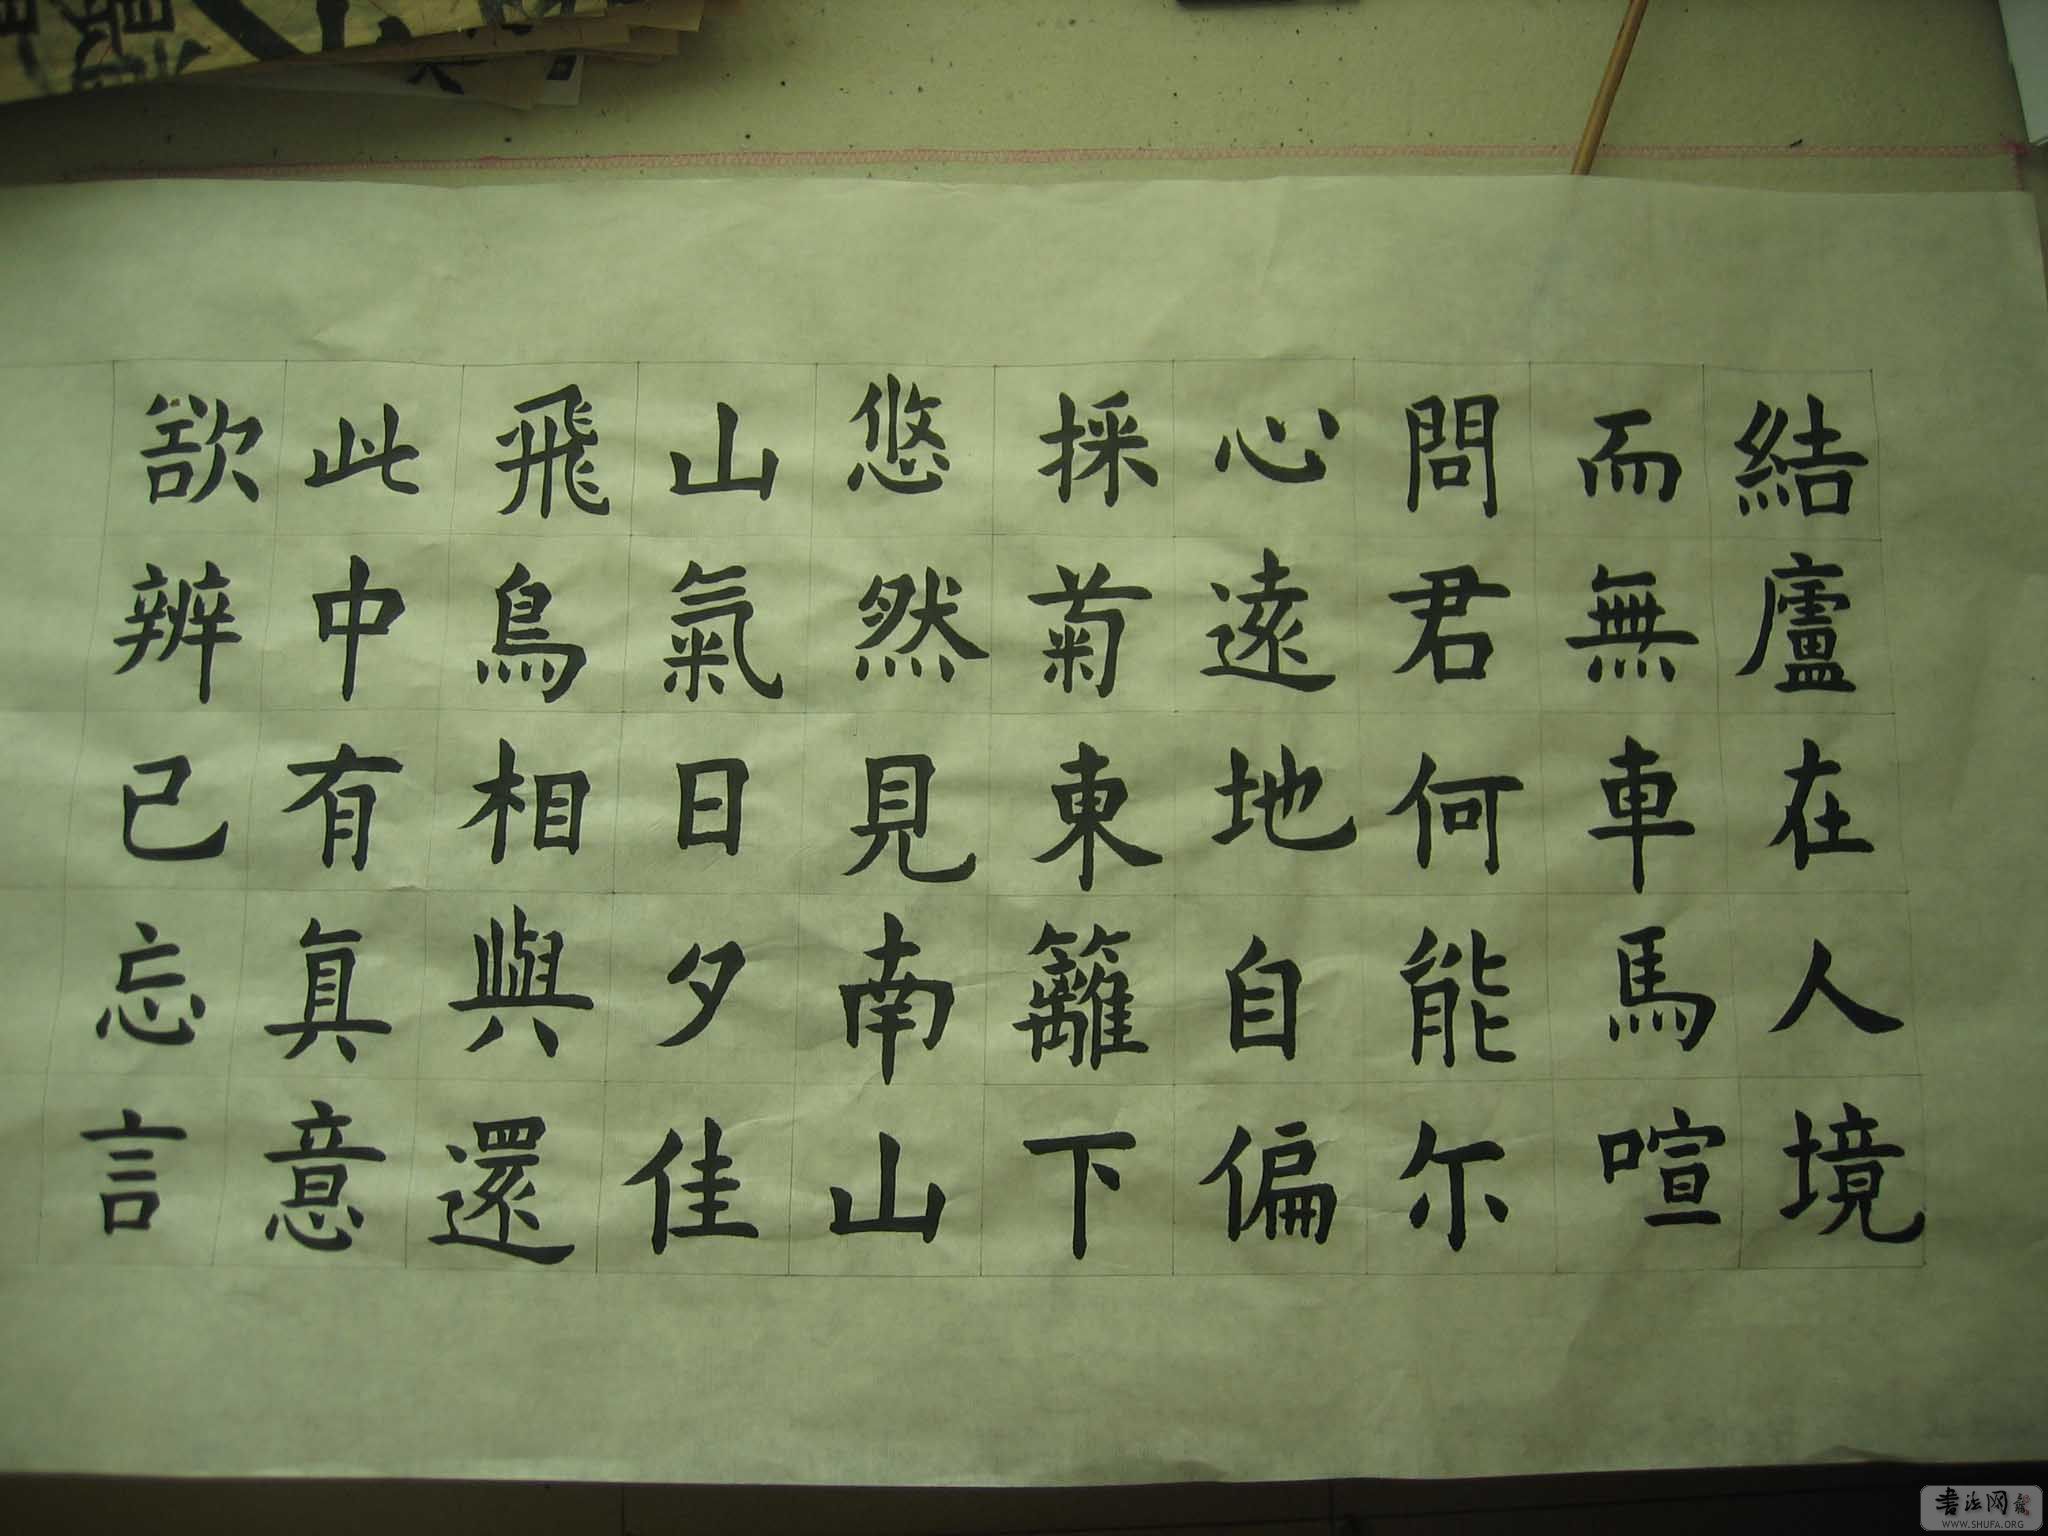 結廬在人境
而無車馬喧
問君何能尓
心遠地自偏
採菊東籬下
悠然見南山
山氣日夕佳
飛鳥相與還
此中有真意
欲辨已忘言
書法网
WWW.SHUFA.ORG